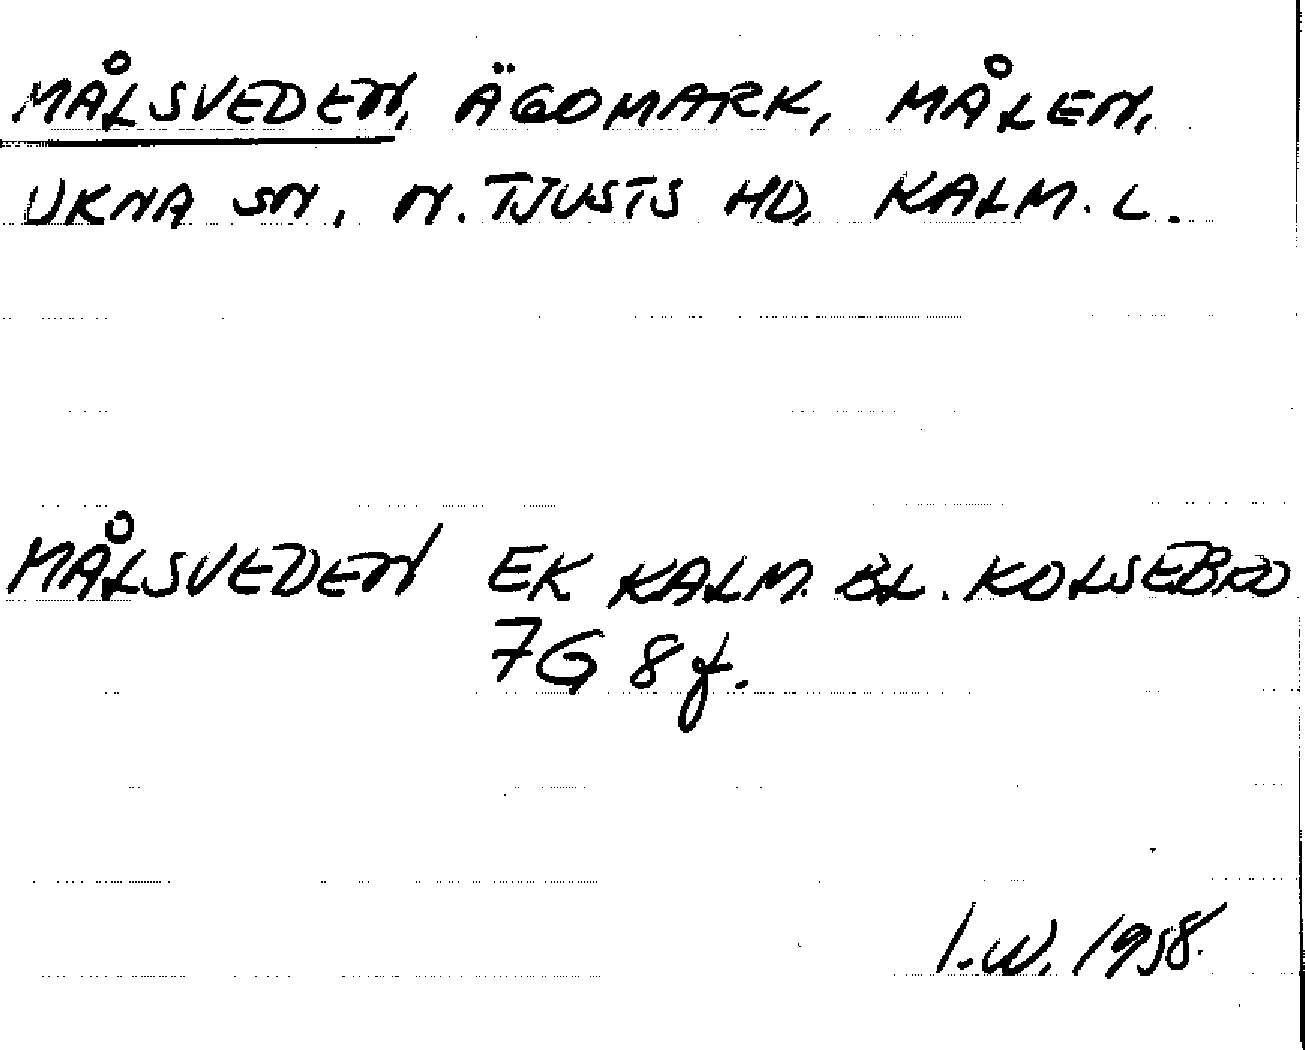 MÅLSVEDEN, ÄGOMARK, MÅLEN,
UKNA SN, N. TJUSTS HD, KALM. L.
MÅLSVEDEN EK KALM. BL. KOLSEBRO
7G 8f.
I.W. 1958.